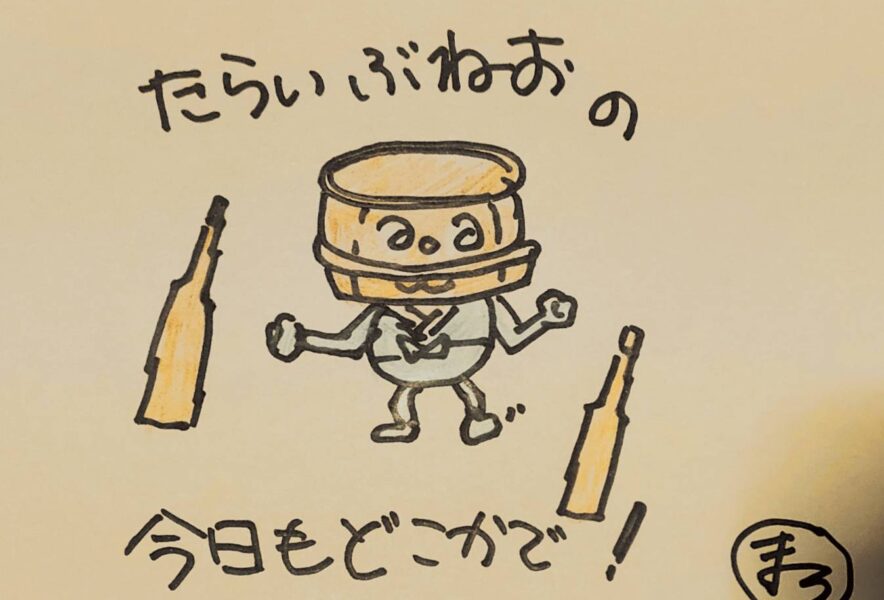 たらいぶねおの
今日もどこかで!
まろ